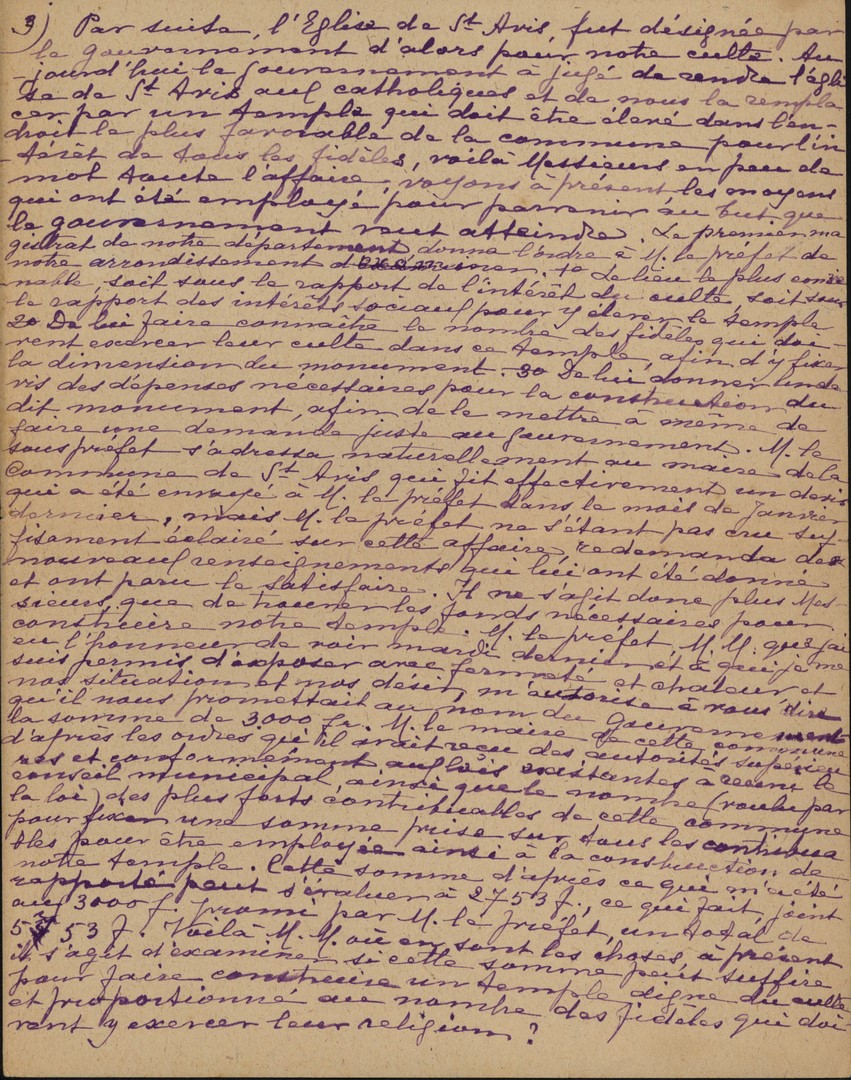 3) Par suite, l'Eglise de St Avis, fut désignée par
le gouvernement d'alors pour notre culte. Au
-jourd'hui le gouvernement à jugé de rendre l'égli
se de St Avis aux catholiques et de nous la rempla
cer par un temple qui doit être élevé dans l'en-
droit le plus favorable de la commune pour l'in
-térêt de tous les fidèles, voilà Messieurs en peu de
mot toute l'affaire, voyons à présent les moyens
qui ont été employé, pour parvenir au but que
le gouvernement veut atteindre. Le premier ma
gistrat de notre département donne l'ordre à M. le préfet de
notre arrondissement d'examiner. 1o Le lieu le plus conve
nable, soit sous le rapport de l'intérêt du culte, soit sous
le rapport des intérêts sociaux pour y élever le temple
2o De lui faire connaître le nombre des fidèles qui doi-
vent exercer leur culte dans ce temple, afin d'y fixer
la dimension du monument. 3o De lui donner un de
vis des dépenses nécessaires pour la construction du
dit monument, afin de le mettre à même de
faire une demande juste au gouvernement. M. le
sous préfet s'adressa naturellement au maire de la
Commune de St Avis qui fit effectivement un devis
qui a été envoyé à M. le préfet dans le mois de janvier
dernier, mais M. le préfet ne s'étant pas cru suf-
fisament éclairé sur cette affaire, redemanda des
nouveaux renseignements qui lui ont été donné
et ont paru le satisfaire. Il ne s'agit donc plus Mes-
sieurs, que de trouver les fonds nécessaires pour
construire notre temple. M. le préfet, M. M. que j'ai
eu l'honneur de voir mardi dernier et à qui je me
suis permis d'exposer avec fermeté et chaleur et
nos situation et nos désir, m'autorise à vous dire
qu'il nous promettait au nom du gouvernement
la somme de 3000 fr. M. le maire de cette commune
d'après les ordres qu'il avait reçu des autorités supérieu
res et conformément aux lois existantes a réuni le
conseil municipal, ainsi que le nombre (voulu par
la loi) des plus forts contribuables de cette commune
pour fixer une somme prise sur tous les contribua
bles pour être employée ainsi à la construction de
notre temple. Cette somme d'après ce qui m'a été
rapporté peut s'évaluer à 2753 f., ce qui fait, joint
aux 3000 f. promi par M. le préfet, un total de
5753 f. Voilà M. M. où en sont les choses, à présent
il s'agit d'examiner si cette somme peut suffire
pour faire construire un temple digne du culte
et proportionné au nombre des fidèles qui doi-
vent y exercer leur religion ?